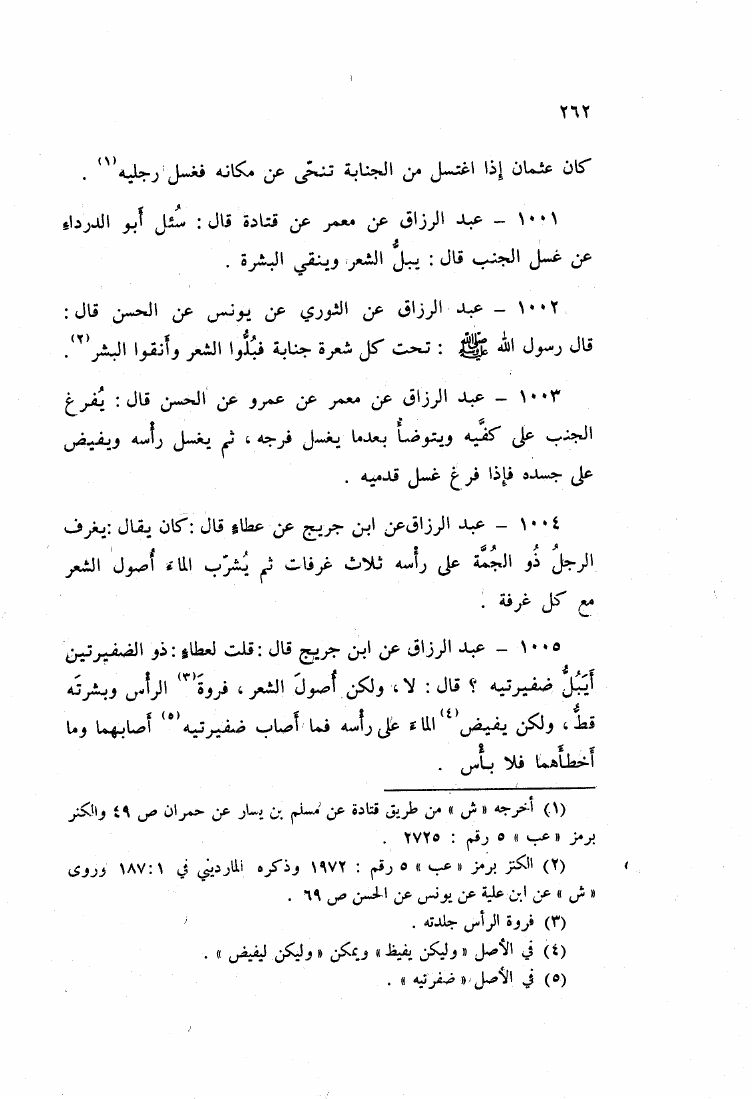 ٢٦٢
كان عثمان إذا اغتسل من الجنابة تنحّى عن مكانه فغسل رجليه(١) .
١٠٠١ – عبد الرزاق عن معمر عن قتادة قال : سُئل أبو الدرداء
عن غسل الجنب قال : يبلُّ الشعر وينقي البشرة .
١٠٠٢ – عبد الرزاق عن الثوري عن يونس عن الحسن قال :
قال رسول الله ﷺ : تحت كل شعرة جنابة فبُلُّوا الشعر وأنقوا البشر(٢).
١٠٠٣ – عبد الرزاق عن معمر عن عمرو عن الحسن قال : يُفرغ
الجنب على كفَّيه ويتوضأُ بعدما يغسل فرجه ، ثم يغسل رأسه ويفيض
على جسده فإذا فرغ غسل قدميه .
١٠٠٤ – عبد الرزاق عن ابن جريج عن عطاء قال : كان يقال : يغرف
الرجلُ ذُو الجُمَّة على رأسه ثلاث غرفات ثم يُشرّب الماء أصول الشعر
مع كل غرفة .
١٠٠٥ – عبد الرزاق عن ابن جريج قال : قلت لعطاء : ذو الضفيرتين
أَيَبُلُّ ضفيرتيه ؟ قال : لا ، ولكن أُصولَ الشعر ، فروةَ(٣) الرأس وبشرتَه
قطُّ ، ولكن يفيض(٤) الماء على رأسه فما أصاب ضفيرتيه(٥) أصابهما وما
أخطأهما فلا بأس .
(١) أخرجه « ش » من طريق قتادة عن مسلم بن يسار عن حمران ص ٤٩ والكنز
برمز « عب » ٥ رقم : ٢٧٢٥ .
(٢) الكنز برمز « عب » ٥ رقم : ١٩٧٢ وذكره المارديني في ١ : ١٨٧ وروى
« ش » عن ابن علية عن يونس عن الحسن ص ٦٩ .
(٣) فروة الرأس جلدته .
(٤) في الأصل « وليكن يفيظ » ويمكن « وليكن ليفيض » .
(٥) في الأصل « ضفرتيه » .